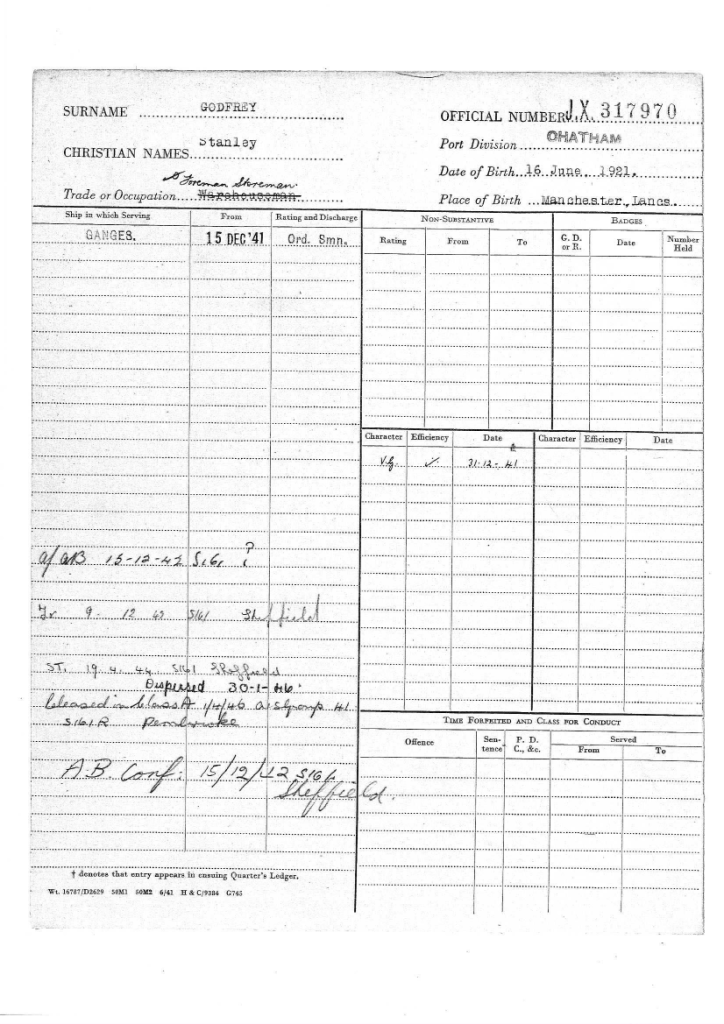 SURNAME GODFREY
OFFICIAL NUMBER J.X. 317970
CHRISTIAN NAMES Stanley
Port Division CHATHAM
Date of Birth 16 June 1921.
Foreman Storeman
Trade or Occupation Warehouseman
Place of Birth Manchester, Lancs.
Ship in which Serving From Rating and Discharge
GANGES. 15 DEC '41 Ord. Smn.
NON-SUBSTANTIVE
Rating From To
BADGES
G. D. or R. Date Number Held
Character Efficiency Date Character Efficiency Date
V.G. 31-12-41
a/AB 15-12-42 S161 ?
9. 12 S161 Sheffield
ST. 19.4.44 S161 Sheffield
Dispersed 30-1-46.
Released in Class A 1/4/46 Group 41
S161R Pembroke
A.B. Conf: 15/12/42 S161
Sheffield.
TIME FORFEITED AND CLASS FOR CONDUCT
Offence Sentence P. D. C., &c. Served
From To
† denotes that entry appears in ensuing Quarter's Ledger.
Wt. 16787/D2629 50M1 60M2 6/41 H & C/9384 G745